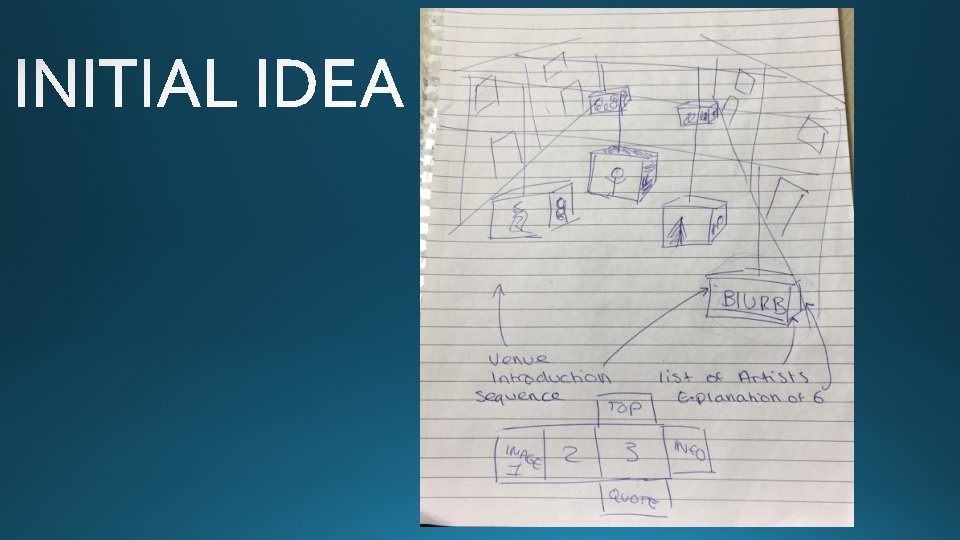 INITIAL IDEA
BLURB
Venue
Introduction
sequence
list of Artists
Explanation of 6
TOP
IMAGE
1
2
3
INFO
QUOTE